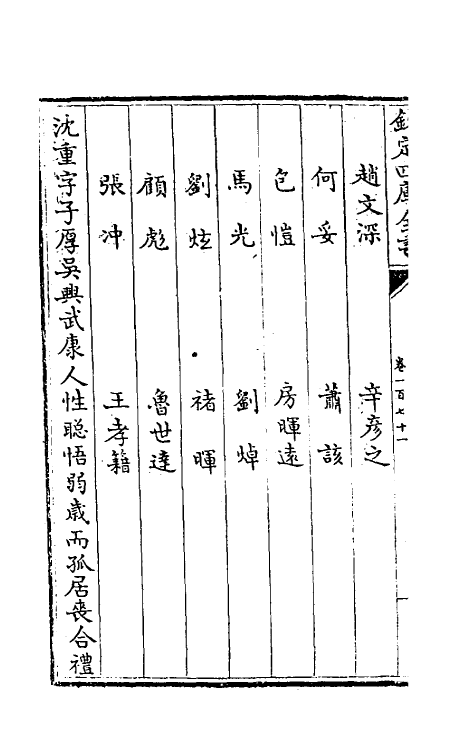 欽定四庫全書
卷一百七十一
趙文深 辛彥之
何妥 蕭該
包愷 房暉遠
馬光 劉焯
劉炫 禇暉
顧彪 魯世達
張沖 王孝籍
沈重字子厚吳興武康人性聰悟弱歲而孤居喪合禮